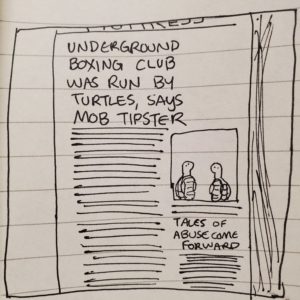 UNDERGROUND
BOXING CLUB
WAS RUN BY
TURTLES, SAYS
MOB TIPSTER
TALES OF
ABUSE COME
FORWARD